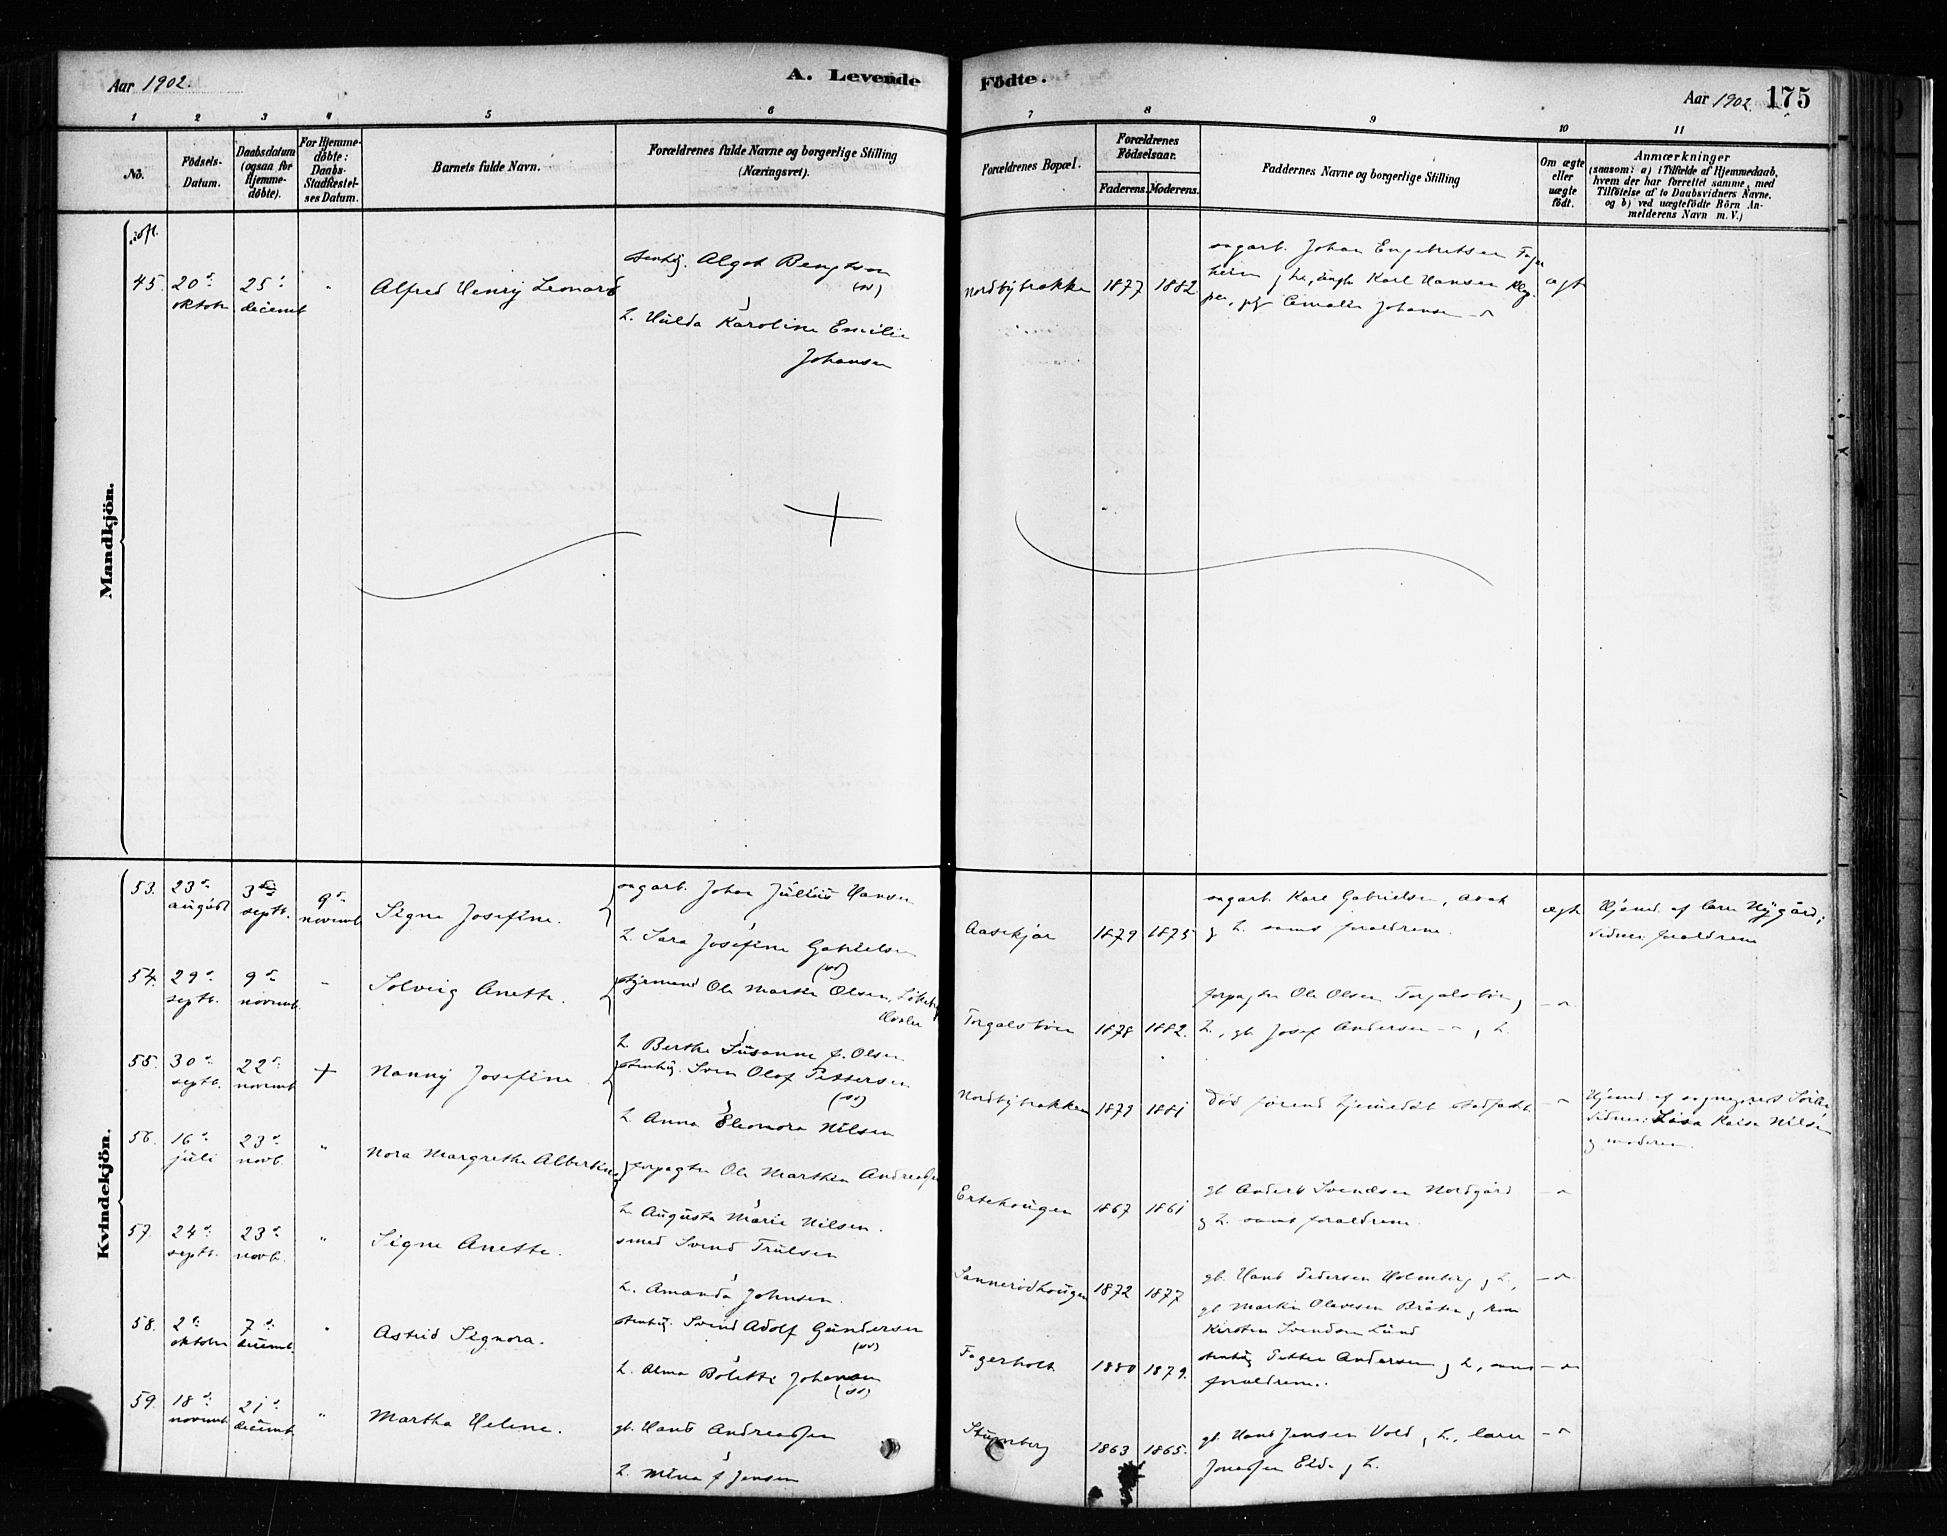 Aar 1902.
A. Levende
Födte.
Aar 1902
175
1 2 3 4 5 6 7 8 9 10 11
No.
Födsels-
Datum.
Daabsdatum
(ogsaa for
Hjemme-
döbte).
For Hjemme-
döbte:
Daabs-
Stadfæstel-
ses Datum.
Barnets fulde Navn.
Forældrenes fulde Navne og borgerlige Stilling
(Næringsvei).
Forældrenes Bopæl.
Forældrenes
Födselsaar.
Faderens.
Moderens.
Faddernes Navne og borgerlige Stilling
Om ægte
eller
uægte
födt.
Anmærkninger
(saasom: a) i Tilfælde af Hjemmedaab,
hvem der har forrettet samme, med
Tilföielse af to Daabsvidners Navne.
og b) ved uægtefödte Börn An-
melderens Navn m. V.)
Mandkjön.
45. 20de
oktober
25de
decemb
"
Alfred Henry Leonard
stenhg. Algot Bengtson
(sv)
h. Hulda Karoline Emilie
Johansen
Nordbybrække
1877
1882
sagarb. Johan Engebretsen
Karl Hansen
Johansen
ægt
Kvindekjön.
53. 23de
august
3die
septb.
9de
novemb
Signe Josefine.
sagarb. Johan Julius Hansen
h. Sara Josefine Gabrielsen
(sv)
Aasekjær
1879
1875
sagarb. Karl Gabrielsen,
g h. samt forældrene.
ægt
Hjemd. af Nygård;
vidner: forældrene
54. 29de
septb.
9de
novemb.
"
Solveig Anette.
styrmand Ole Martin Olsen,
Hvaler
h. Berthe Susanne f. Olsen
Torgalsböen
1878
1882.
forpagter Ole Olsen Torgalsböen g
h., gb. Josef Andersen g h.
55. 30de
septb.
22de
novemb
+
Nanny Josefine
stenhg. Sven Olof Pettersen
(sv)
h. Anna Eleonora Nilsen
Nordbybrækken
1879
1881
död förend hjemedåb stadfæst.
Hjemd. af sogneprest
vidner: Lisa Kaisa Nilsen
g moderen.
56. 16de
juli
23de
novb.
"
Nora Margrethe Albertine
forpagter Ole Marthin Andreassen
h. Augusta Marie Nilsen.
Ertehougen
1867
1861
gb Anders Svendsen Nordgård
g h. samt forældrene.
57. 24de
septb.
23de
novb.
"
Signe Anette.
smed Svend Trulsen
h. Amanda Johnsen.
Sannerödhougen
1872
1877
gb. Hans Pedersen Holmberg g h.,
gb Martin Olavesen Bråten g kone
Kirsten Svendsen Lund
58. 2de
oktober
7de
decemb.
"
Astrid Signora.
stenhg. Svend Adolf Gundersen
(sv)
h. Alma Bolette Johansen
(sv)
Fagerholt
1880
1879.
stenhg Petter Andersen g h., samt
forældrene.
59. 18de
novemb.
21de
decemb.
"
Martha Helene.
gb. Hans Andreassen
h. Mina f Jensen
1863
1865.
gb. Hans Jensen Vold g h.,
Jonassen Elde g h.